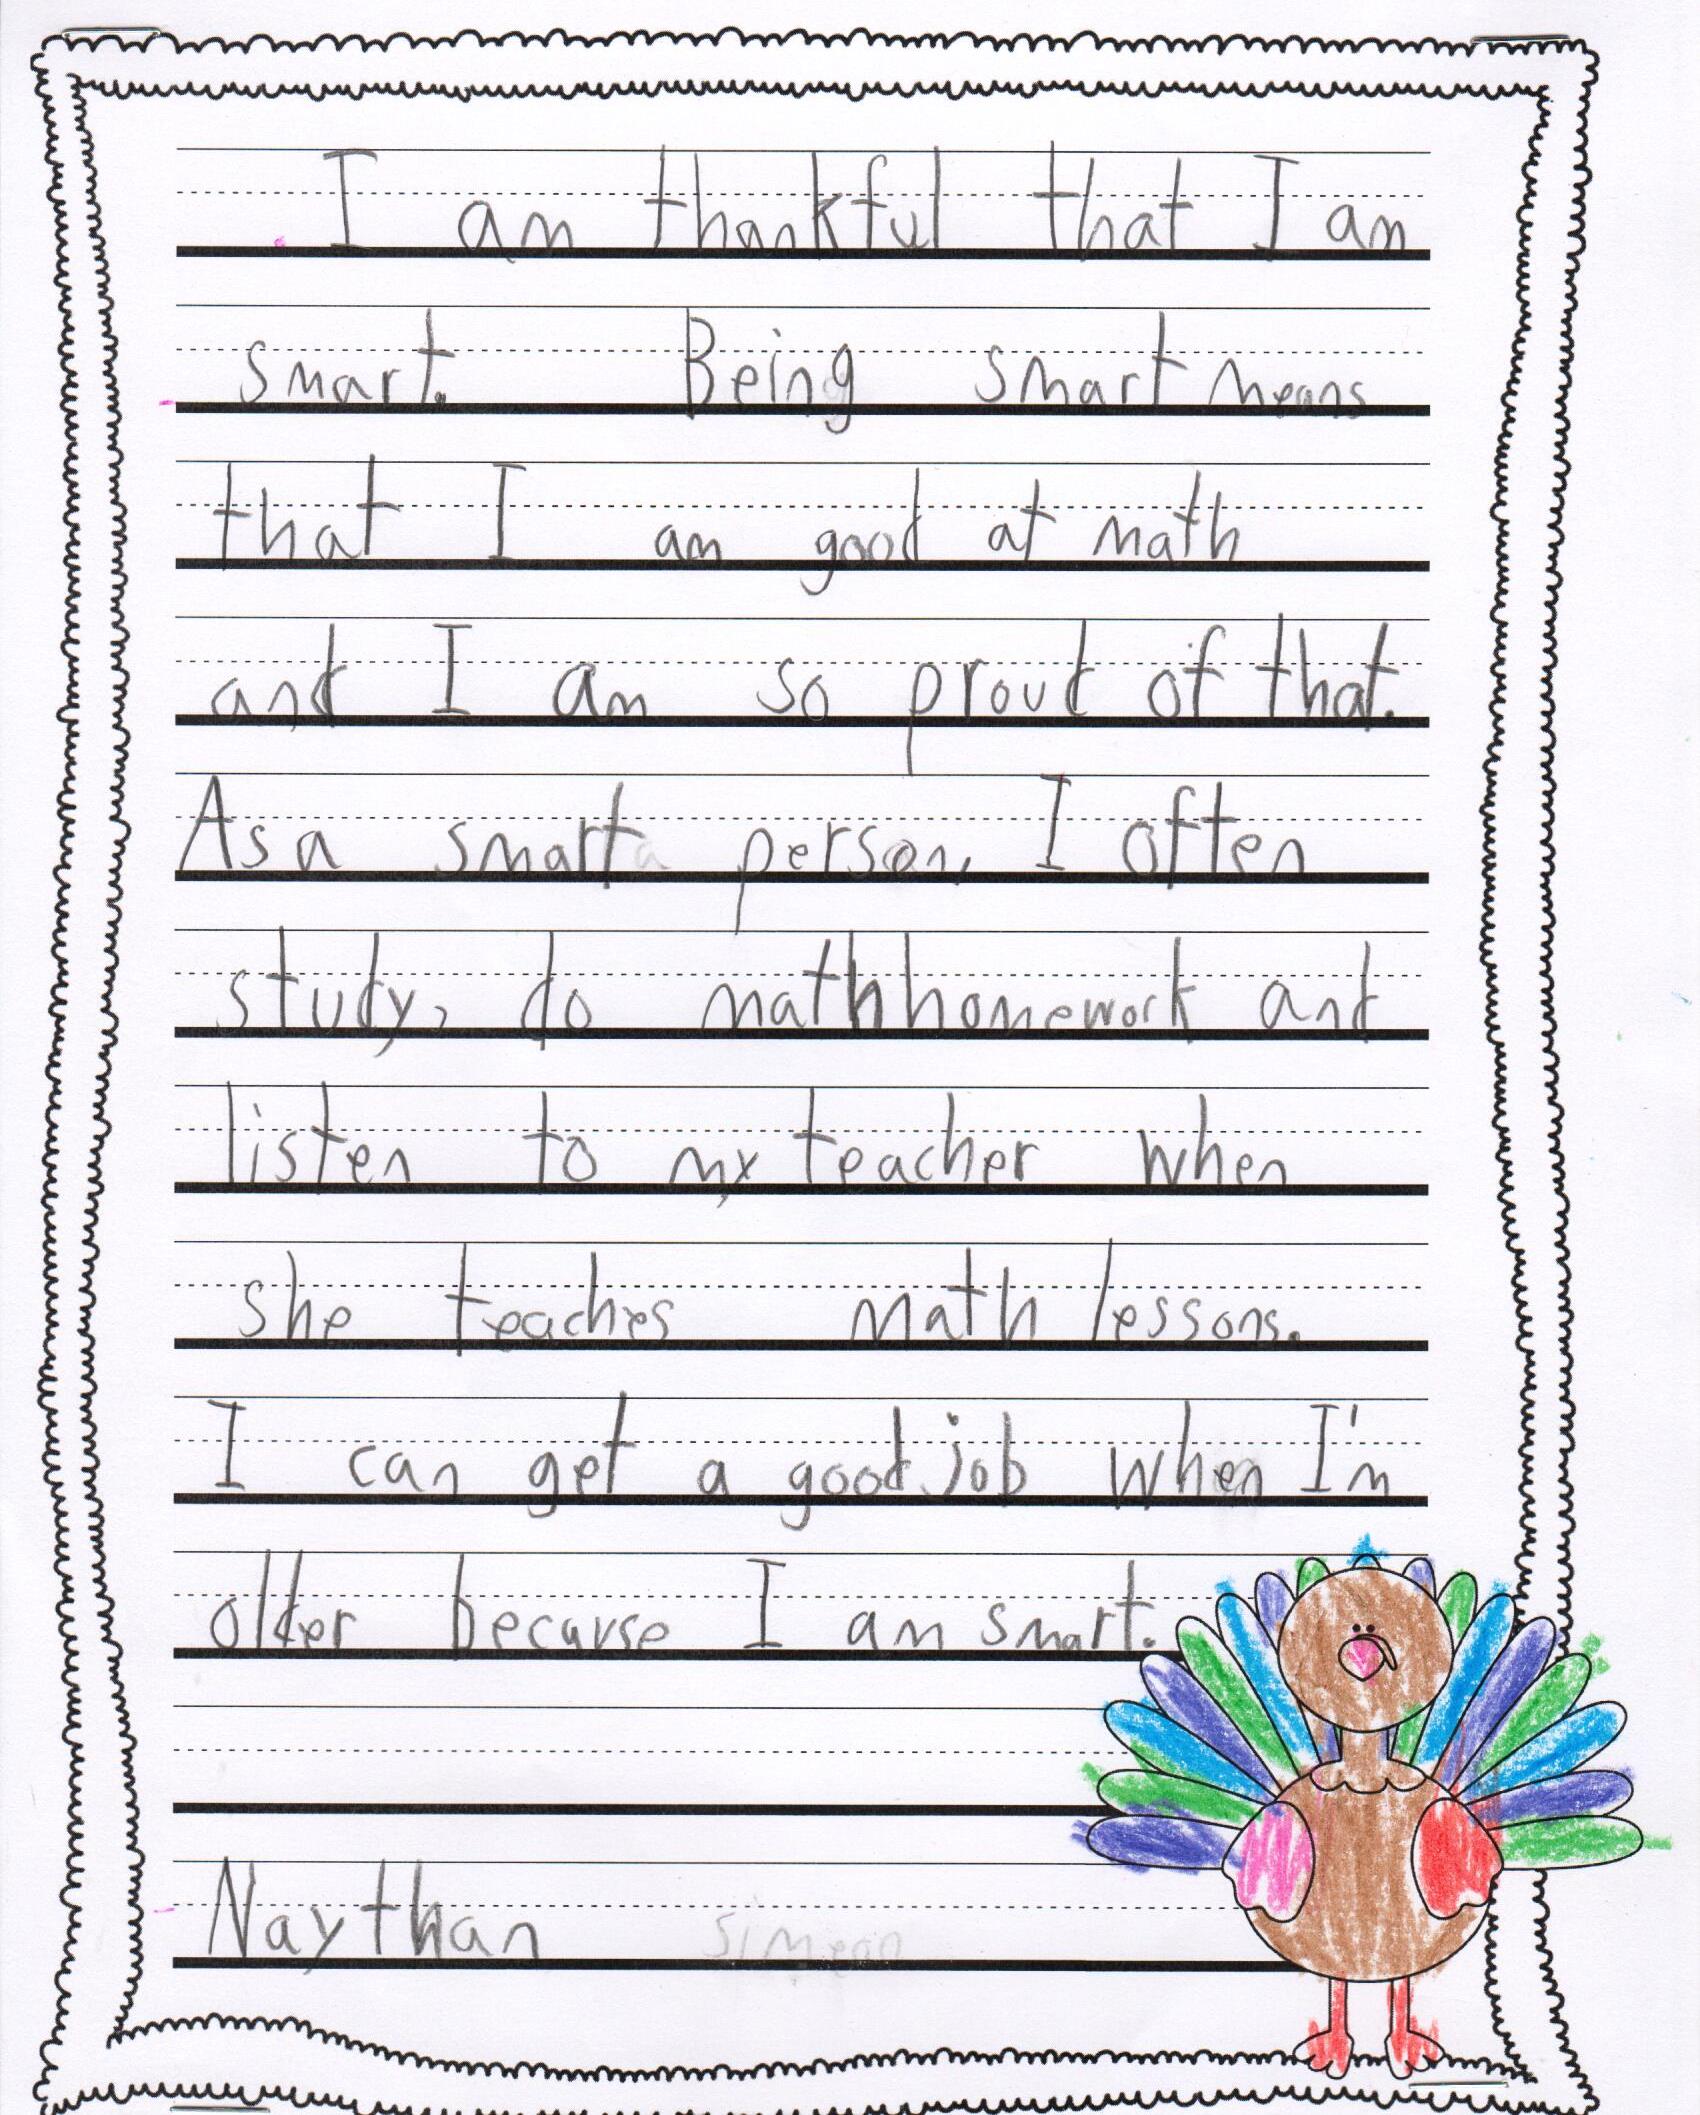 I am thankful that I am
smart. Being smart means
that I am good at math
and I am so proud of that.
As a smart person, I often
study, do math homework and
listen to my teacher when
she teaches math lessons.
I can get a good job when I'm
older because I am smart.
Naythan simean